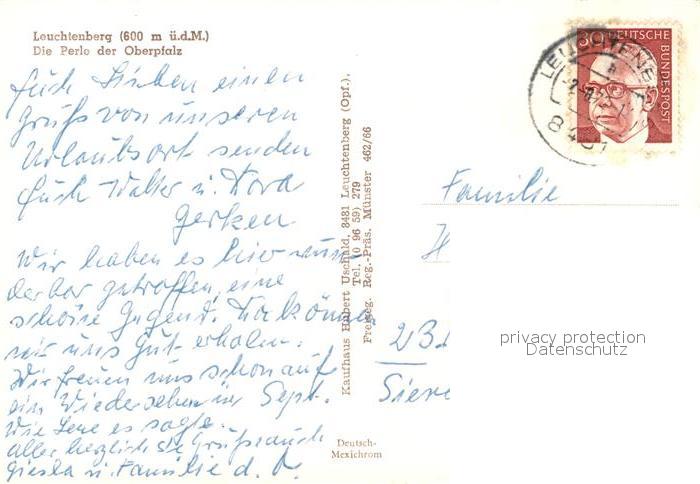 Leuchtenberg (600 m ü.d.M.)
Die Perle der Oberpfalz
Euch Lieben einen
Gruß von unseren
Urlaubsort senden
Euch Walter u. Dora
Gerken
Wir haben es hier wun-
derbar getroffen, eine
schöne Gegend. Da können
wir uns gut erholen.
Wir freuen uns schon auf
ein Wiedersehen im Sept.
Wie Lene es sagte.
aller herzlichste Grüsse auch
Gisela u. Familie d. O.
Kaufhaus Hubert Uschald, 8481 Leuchtenberg (Opf.),
Tel. (0 96 59) 279
Freigeg. Reg.-Präs. Münster 462/66
Deutsch-
Mexichrom
80 DEUTSCHE
BUNDESPOST
LEUCHTENBE
8481
Familie
H
23
Sieve
privacy protection
Datenschutz